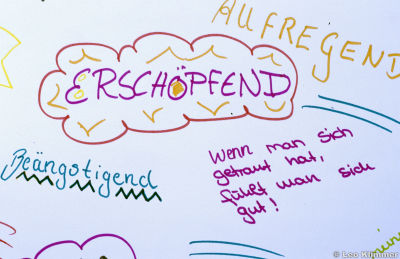 AUFREGEND
ERSCHÖPFEND
Beängstigend
Wenn man sich
getraut hat,
fühlt man sich
gut!
© Leo Klimmer